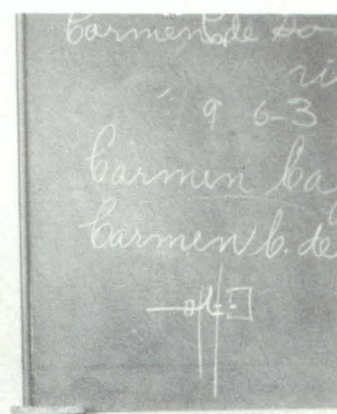 Carmen C. de So
ri
1963
Carmen Ca
Carmen C. de